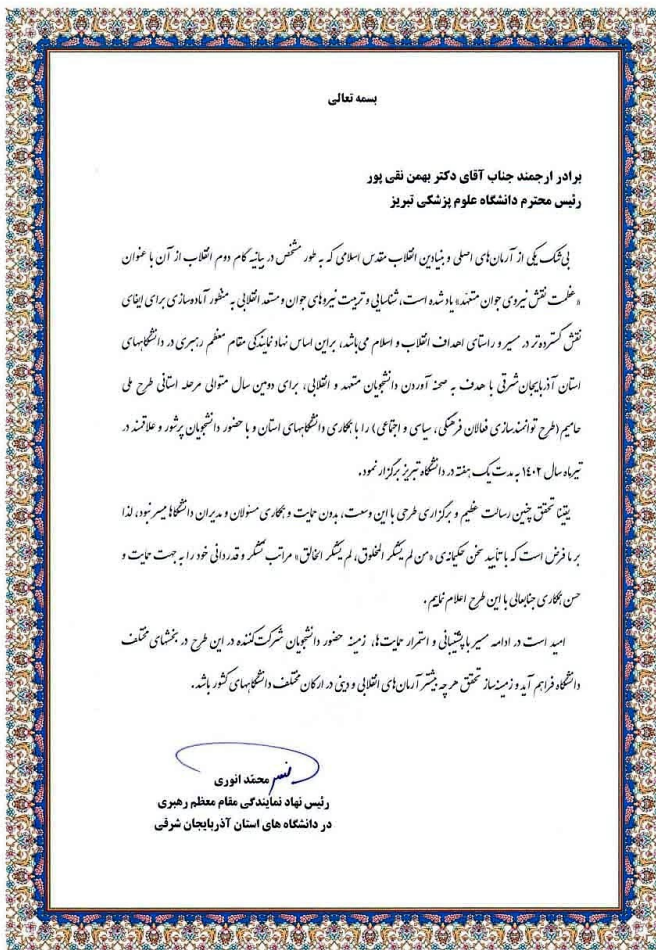 بسمه تعالی
برادر ارجمند جناب آقای دکتر بهمن نقی پور
رئیس محترم دانشگاه علوم پزشکی تبریز
بی‌شک یکی از آرمان‌های اصلی و بنیادین انقلاب مقدس اسلامی که به طور مشخص در بیانیه گام دوم انقلاب از آن با عنوان
«عظمت نقش نیروی جوان متعهد» یاد شده است، شناسایی و تربیت نیروهای جوان و مستعد انقلابی به منظور آماده‌سازی برای ایفای
نقش گسترده‌تر در مسیر و راستای اهداف انقلاب و اسلام می‌باشد، براین اساس نهاد نمایندگی مقام معظم رهبری در دانشگاههای
استان آذربایجان شرقی با هدف به صحنه آوردن دانشجویان متعهد و انقلابی، برای دومین سال متوالی مرحله استانی طرح ملی
حامیم (طرح توانمندسازی فعالان فرهنگی، سیاسی و اجتماعی) را با همکاری دانشگاههای استان و با حضور دانشجویان پرشور و علاقمند در
تیرماه سال ۱۴۰۲ به مدت یک هفته در دانشگاه تبریز برگزار نمود.
یقینا تحقق چنین رسالت عظیم و برگزاری طرحی با این وسعت، بدون حمایت و همکاری مسئولان و مدیران دانشگاهها میسر نبود، لذا
بر ما فرض است که با تأیید سخن حکیمانه‌ی «من لم یشکر المخلوق، لم یشکر الخالق» مراتب تشکر و قدردانی خود را به جهت حمایت و
حسن همکاری جنابعالی با این طرح اعلام نماییم.
امید است در ادامه مسیر با پشتیبانی و استمرار حمایت‌ها، زمینه حضور دانشجویان شرکت‌کننده در این طرح در بخشهای مختلف
دانشگاه فراهم آید و زمینه‌ساز تحقق هر چه بیشتر آرمان‌های انقلابی و دینی در ارکان مختلف دانشگاههای کشور باشد.
محمّد انوری
رئیس نهاد نمایندگی مقام معظم رهبری
در دانشگاه های استان آذربایجان شرقی